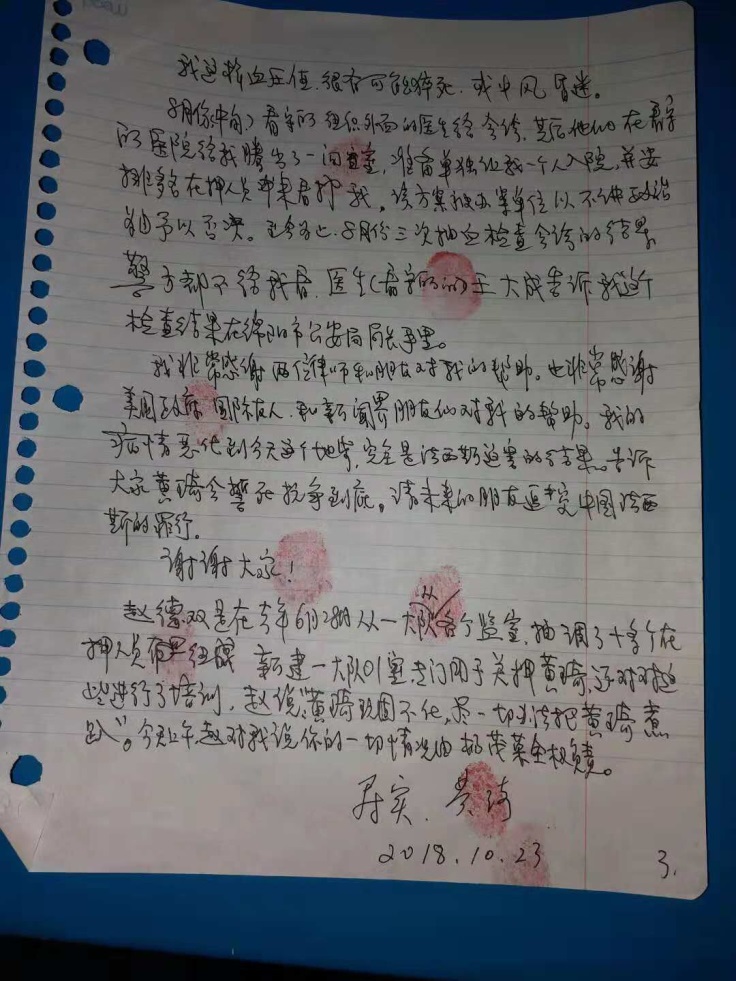 我这样血压值,很有可能猝死,或中风昏迷。
8月份(中旬)看守所组织外面的医生给会诊,其后他们在看守
的医院给我腾出了一间,准备单独让我一个人入院,并安
排多名在押人员 看押我,该方案被办案单位以不
予以否决。至今为止,8月份三次抽血检查会诊的结果
警方都不给我看,医生(看守所的)王大成告诉我这个
检查结果在绵阳市公安局局长手里。
我非常感谢两位律师和朋友对我的帮助,也非常感谢
美国政府、国际友人、和新闻界朋友们对我的帮助。我的
病情恶化到今天这个地步,完全是法西斯迫害的结果。告诉
大家黄琦会誓死抗争到底。请未来的朋友追究中国法西
斯的罪行。
谢谢大家!
赵德双是在去年6月28日从一大队各个监室,抽调了十多个在
押人员 新建一大队01室,专门用于关押黄琦,还对
进行了培训,赵说:“黄琦顽固不化,尽一切办法把黄琦煮
趴”。今天上午,赵对我说你的一切情况由 全权负责。
属实. 黄琦
2018.10.23
3.